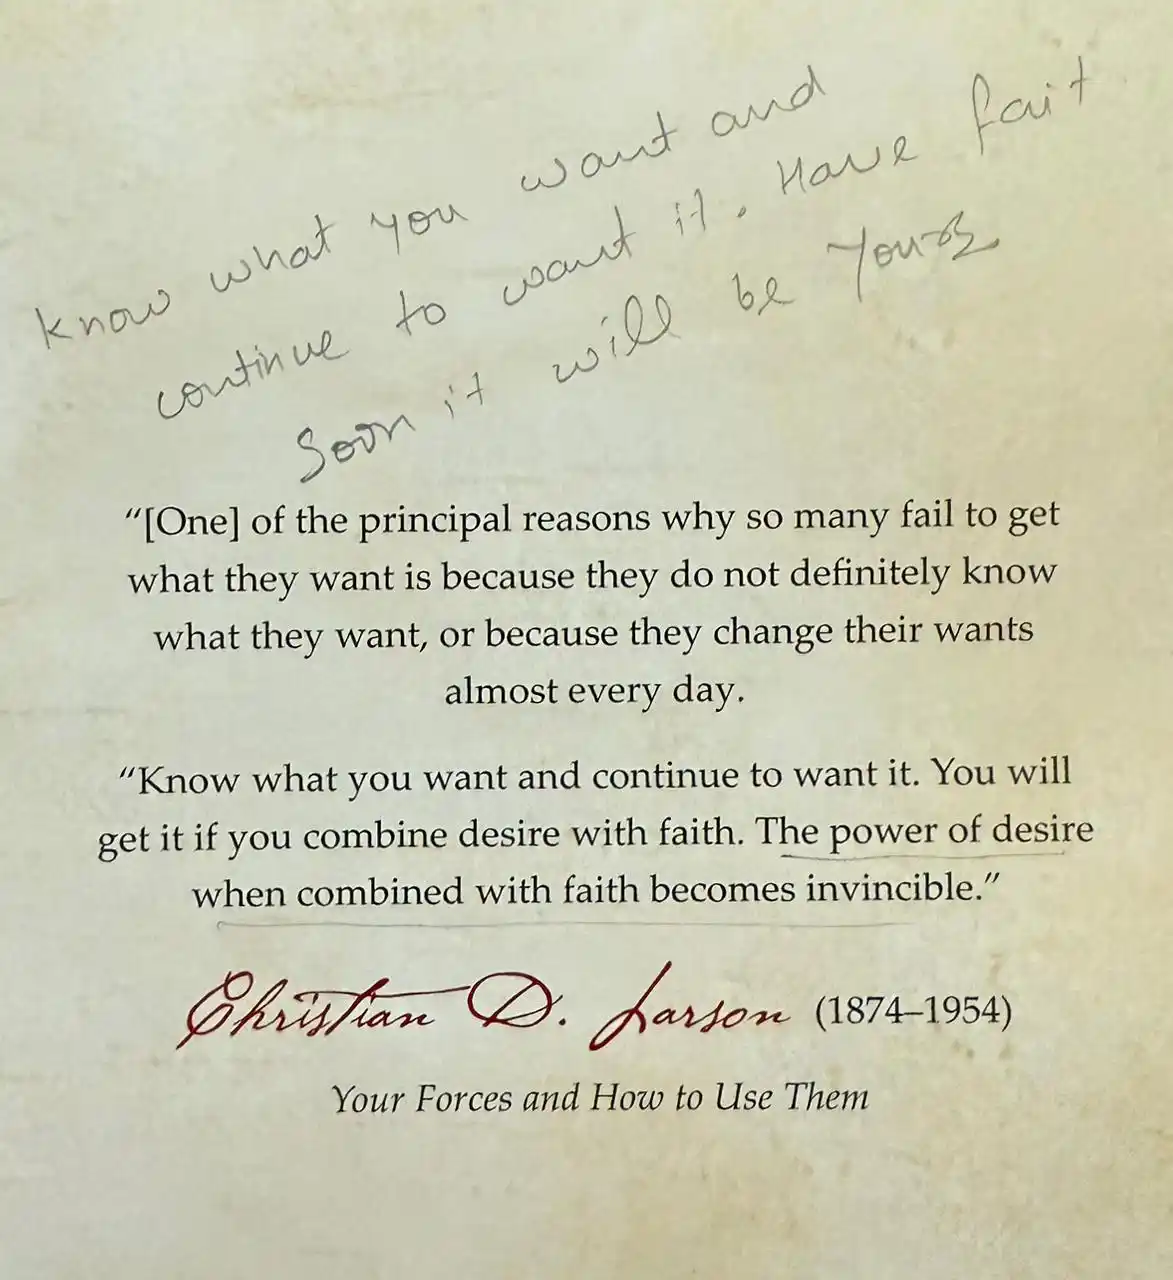 Know what you want and
continue to want it. Have fait
Soon it will be Yours
“[One] of the principal reasons why so many fail to get
what they want is because they do not definitely know
what they want, or because they change their wants
almost every day.
“Know what you want and continue to want it. You will
get it if you combine desire with faith. The power of desire
when combined with faith becomes invincible.”
Christian D. Larson (1874–1954)
Your Forces and How to Use Them